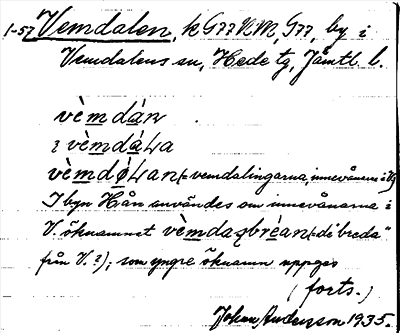 1-57 Vemdalen, k G77NM, G77, by i
Vemdalens sn, Hede tg, Jämtl. l.
vèmdán
i vèmdáLa
vèmdǿLan (= vemdalingarna, innevånarna i V.)
I byn Hån användes om innevånarna i
V. öknamnet vèmdazbréan (= de "breda"
från V.?); som yngre öknamn uppges
(forts.)
Johan Anderson 1935.